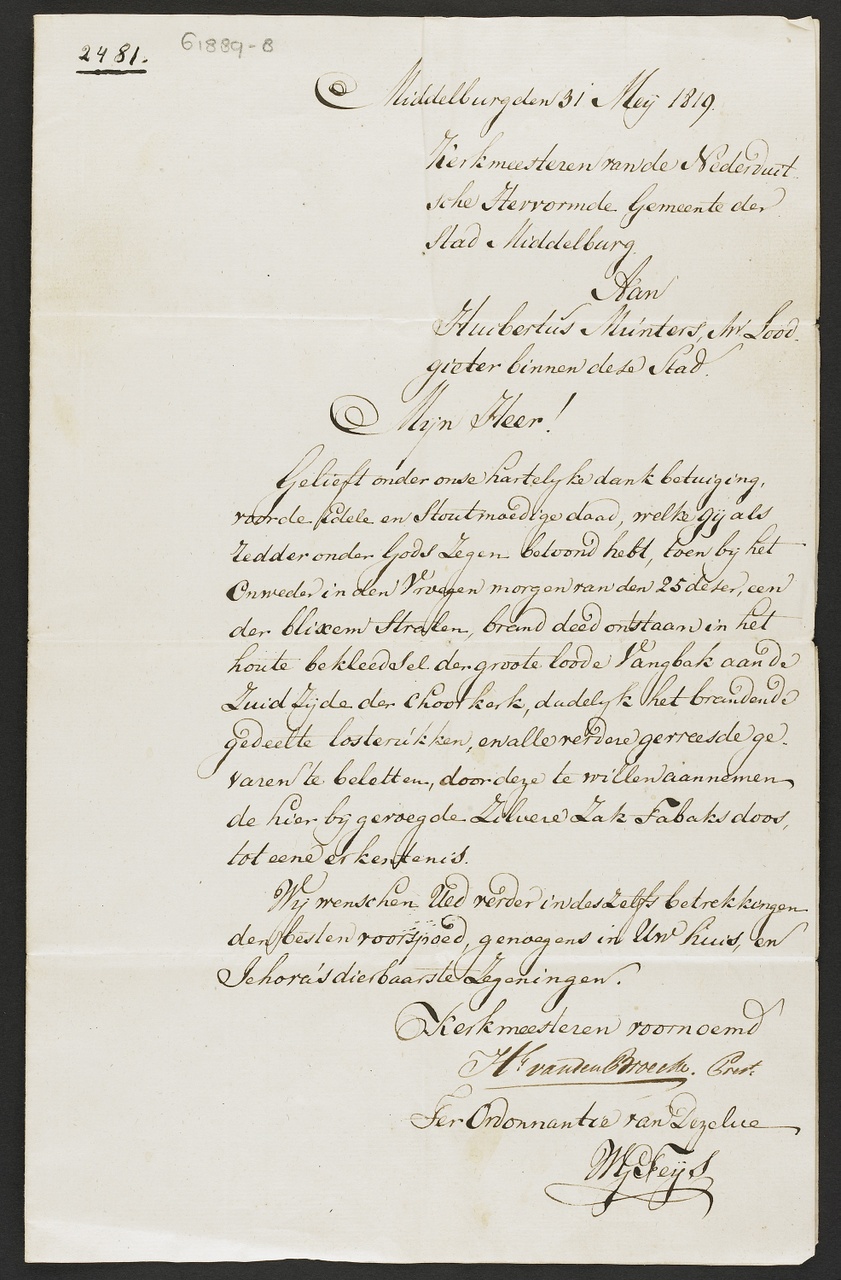 2481.
61889-8
Middelburg den 31 Meÿ 1819.
Kerkmeesteren van de Nederduit
sche Hervormde Gemeente der
Stad Middelburg.
Aan
Huibertus Munters, Mr Lood
gieter binnen dese Stad.
Mÿn Heer!
Gelieft onder onse hartelyke dank betuiging,
voor de Edele en Stoutmoedige daad, welke gÿ als
redder onder Gods Zegen betoond hebt, toen bÿ het
Onweder in den Vroegen morgen van den 25 deser, een
der blixem Stralen, brand deed ontstaan in het
houte bekleedsel der groote loode Vangbak aan de
Zuid Zijde der choor kerk, dadelyk het brandende
gedeelte losterukken, en alle verdere gevreesde ge-
varen te beletten, door deze te willen aannemen
de hier bÿ gevoegde Zilvere Zak Tabaks doos,
tot eene erkentenis.
Wÿ wenschen Ued verder in deszelfs betrekkingen
den besten voorspoed, genoegens in Uw huis, en
Jehova's dierbaarste Zegeningen.
Kerkmeesteren voornoemd
Hk van den Broecke. Prest.
Ter Ordonnantie van Dezelve
WJ Feÿs